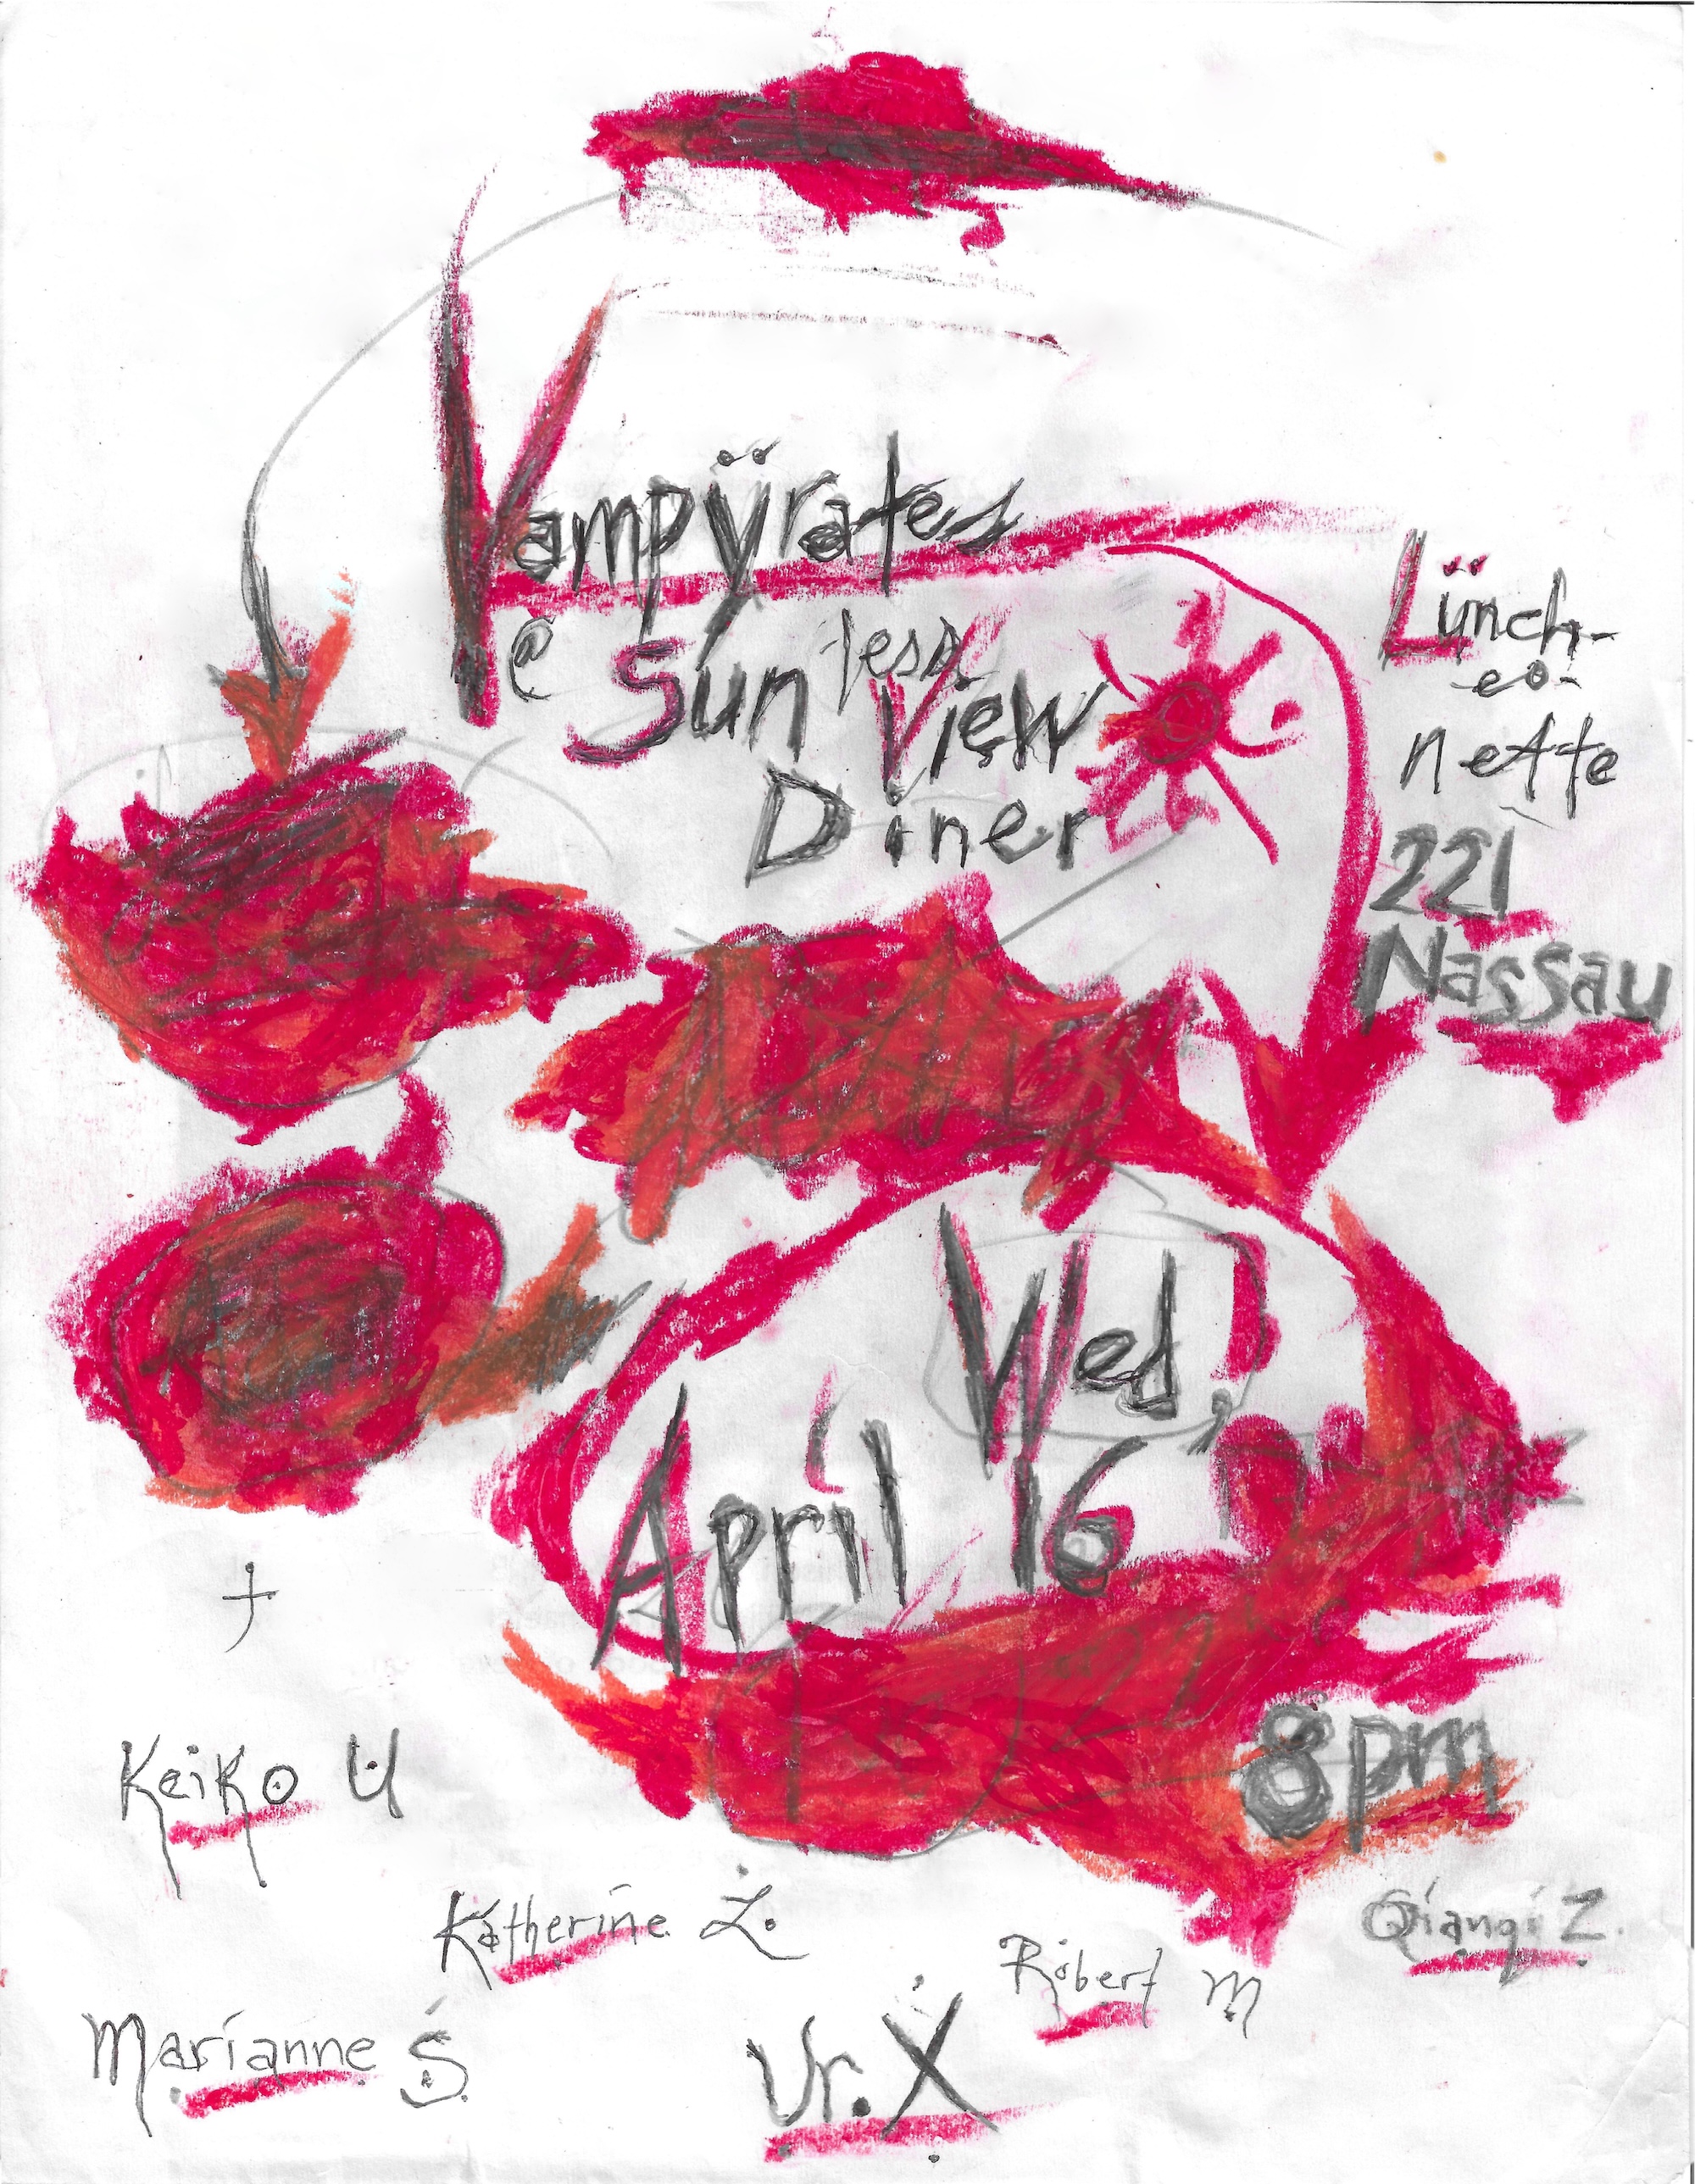 Vampÿrates
@ Sunless View
Diner
Lünch-
eo-
nette
221
Nassau
Wed,
April 16
8pm
Keiko U
Katherine L.
Robert M
Qianqi Z.
Marianne S.
Vr. X